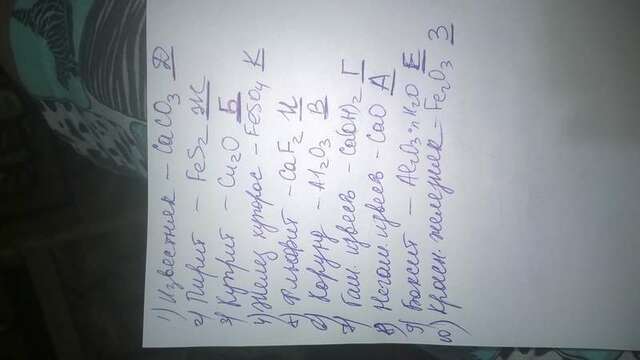 1) Известняк - CaCO3 Д
2) Пирит - FeS2 Ж
3) Куприт - Cu2O Б
4) Желез. купорос - FeSO4 К
5) Флюорит - CaF2 И
6) Корунд - Al2O3 В
7) Гаш. известь - Ca(OH)2 Г
8) Негаш. известь - CaO А
9) Боксит - Al2O3·nH2O Е
10) Красн. железняк - Fe2O3 З